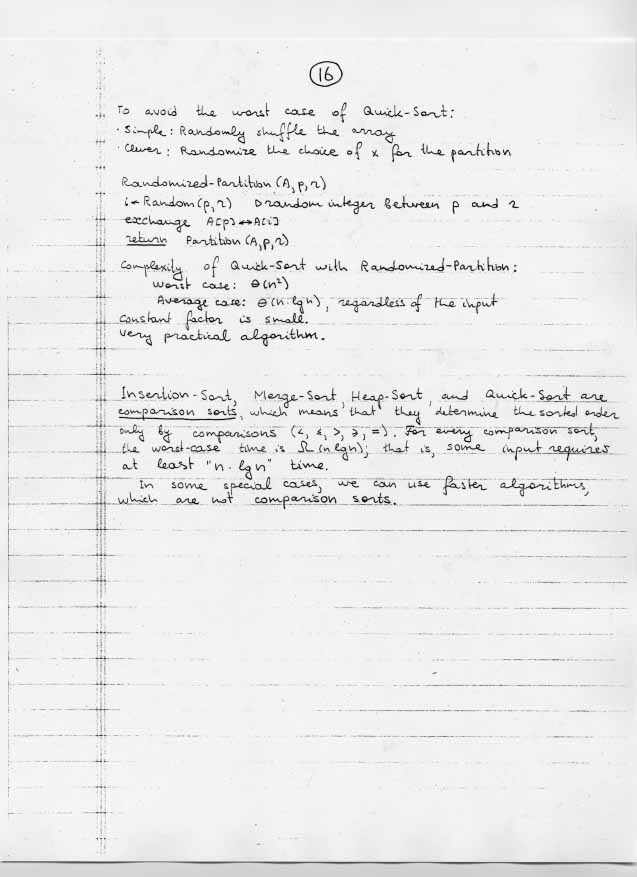 16
To avoid the worst case of Quick-Sort:
· Simple: Randomly shuffle the array
· Clever: Randomize the choice of x for the partition
Randomized-Partition (A,p,r)
i ← Random(p,r) ▷ random integer between p and r
exchange A[p] ↔ A[i]
return Partition (A,p,r)
Complexity of Quick-Sort with Randomized-Partition:
Worst case: Θ(n²)
Average case: Θ(n·lgn), regardless of the input
Constant factor is small.
Very practical algorithm.
Insertion-Sort, Merge-Sort, Heap-Sort, and Quick-Sort are
comparison sorts, which means that they determine the sorted order
only by comparisons (<, ≤, >, ≥, =). For every comparison sort,
the worst-case time is Ω(n lgn); that is, some input requires
at least "n·lgn" time.
In some special cases, we can use faster algorithms,
which are not comparison sorts.